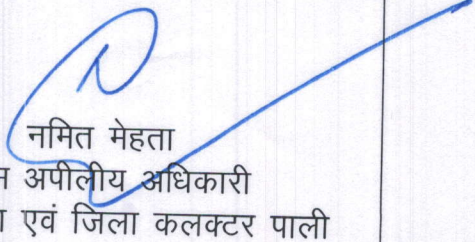 नमित मेहता
अपीलीय अधिकारी
एवं जिला कलक्टर पाली